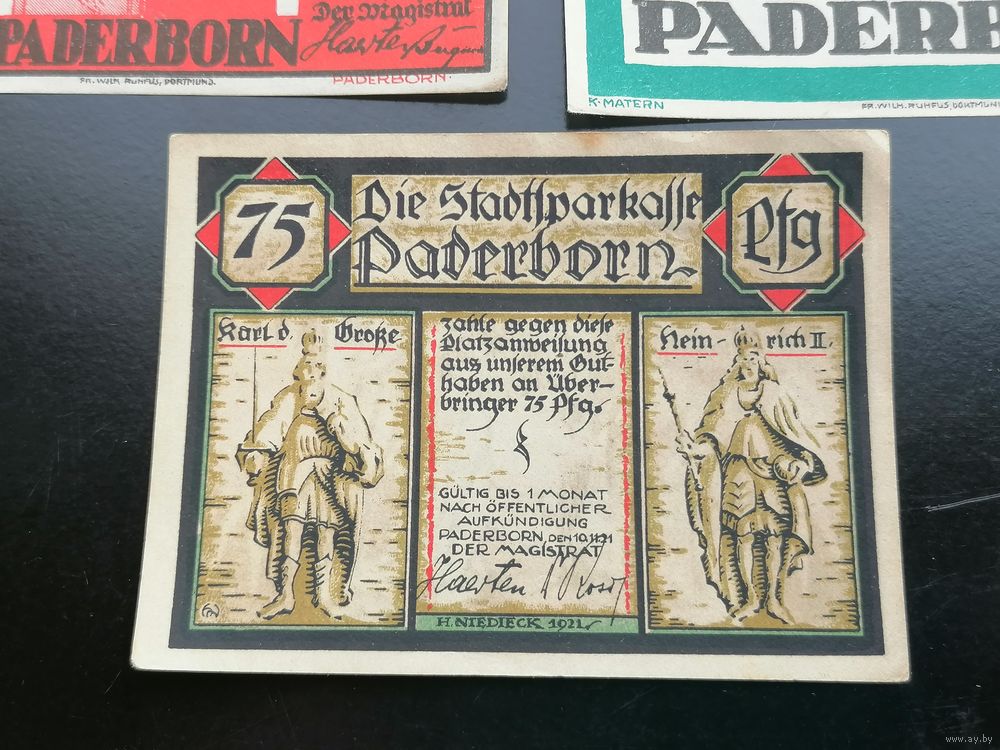 Der Magistrat
PADERBORN
FR. WILH. RUHFUS, DORTMUND.
PADERBORN.
PADERB
K. MATERN
FR. WILH. RUHFUS, DORTMUN
75
Die Stadtsparkasse
Paderborn
Pfg
Karl d. Große
zahle gegen diese
Platzanweisung
aus unserem Gut-
haben an Über-
bringer 75 Pfg.
Hein- rich II.
GÜLTIG BIS 1 MONAT
NACH ÖFFENTLICHER
AUFKÜNDIGUNG
PADERBORN, DEN 10.11.21
DER MAGISTRAT
Haerten
H. NIEDIECK 1921
www.ay.by